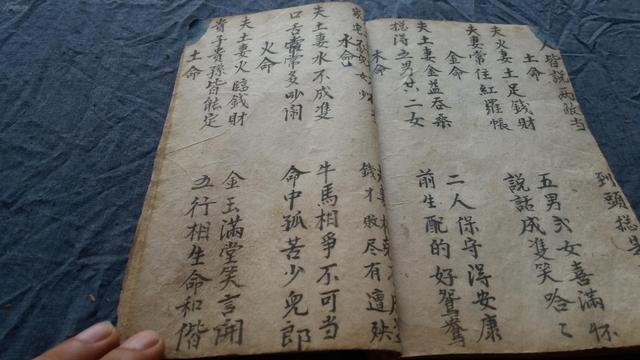 人皆說兩敵当
到頭捴是
土命
夫火妻土足錢財
五男弍女喜滿怀
夫妻常住紅羅帳
說話成雙笑哈々
金命
夫土妻金益
二人保守得安康
捴得五男共二女
前生配的好鴛鴦
木命
錢才敗尽有遭殃
水命
夫土妻水不成雙
牛馬相爭不可当
口舌常常多吵闹
命中孤苦少兒郎
火命
夫土妻火臨錢財
金玉滿堂笑言開
貴子貴孫皆能定
五行相生命和偕
土命